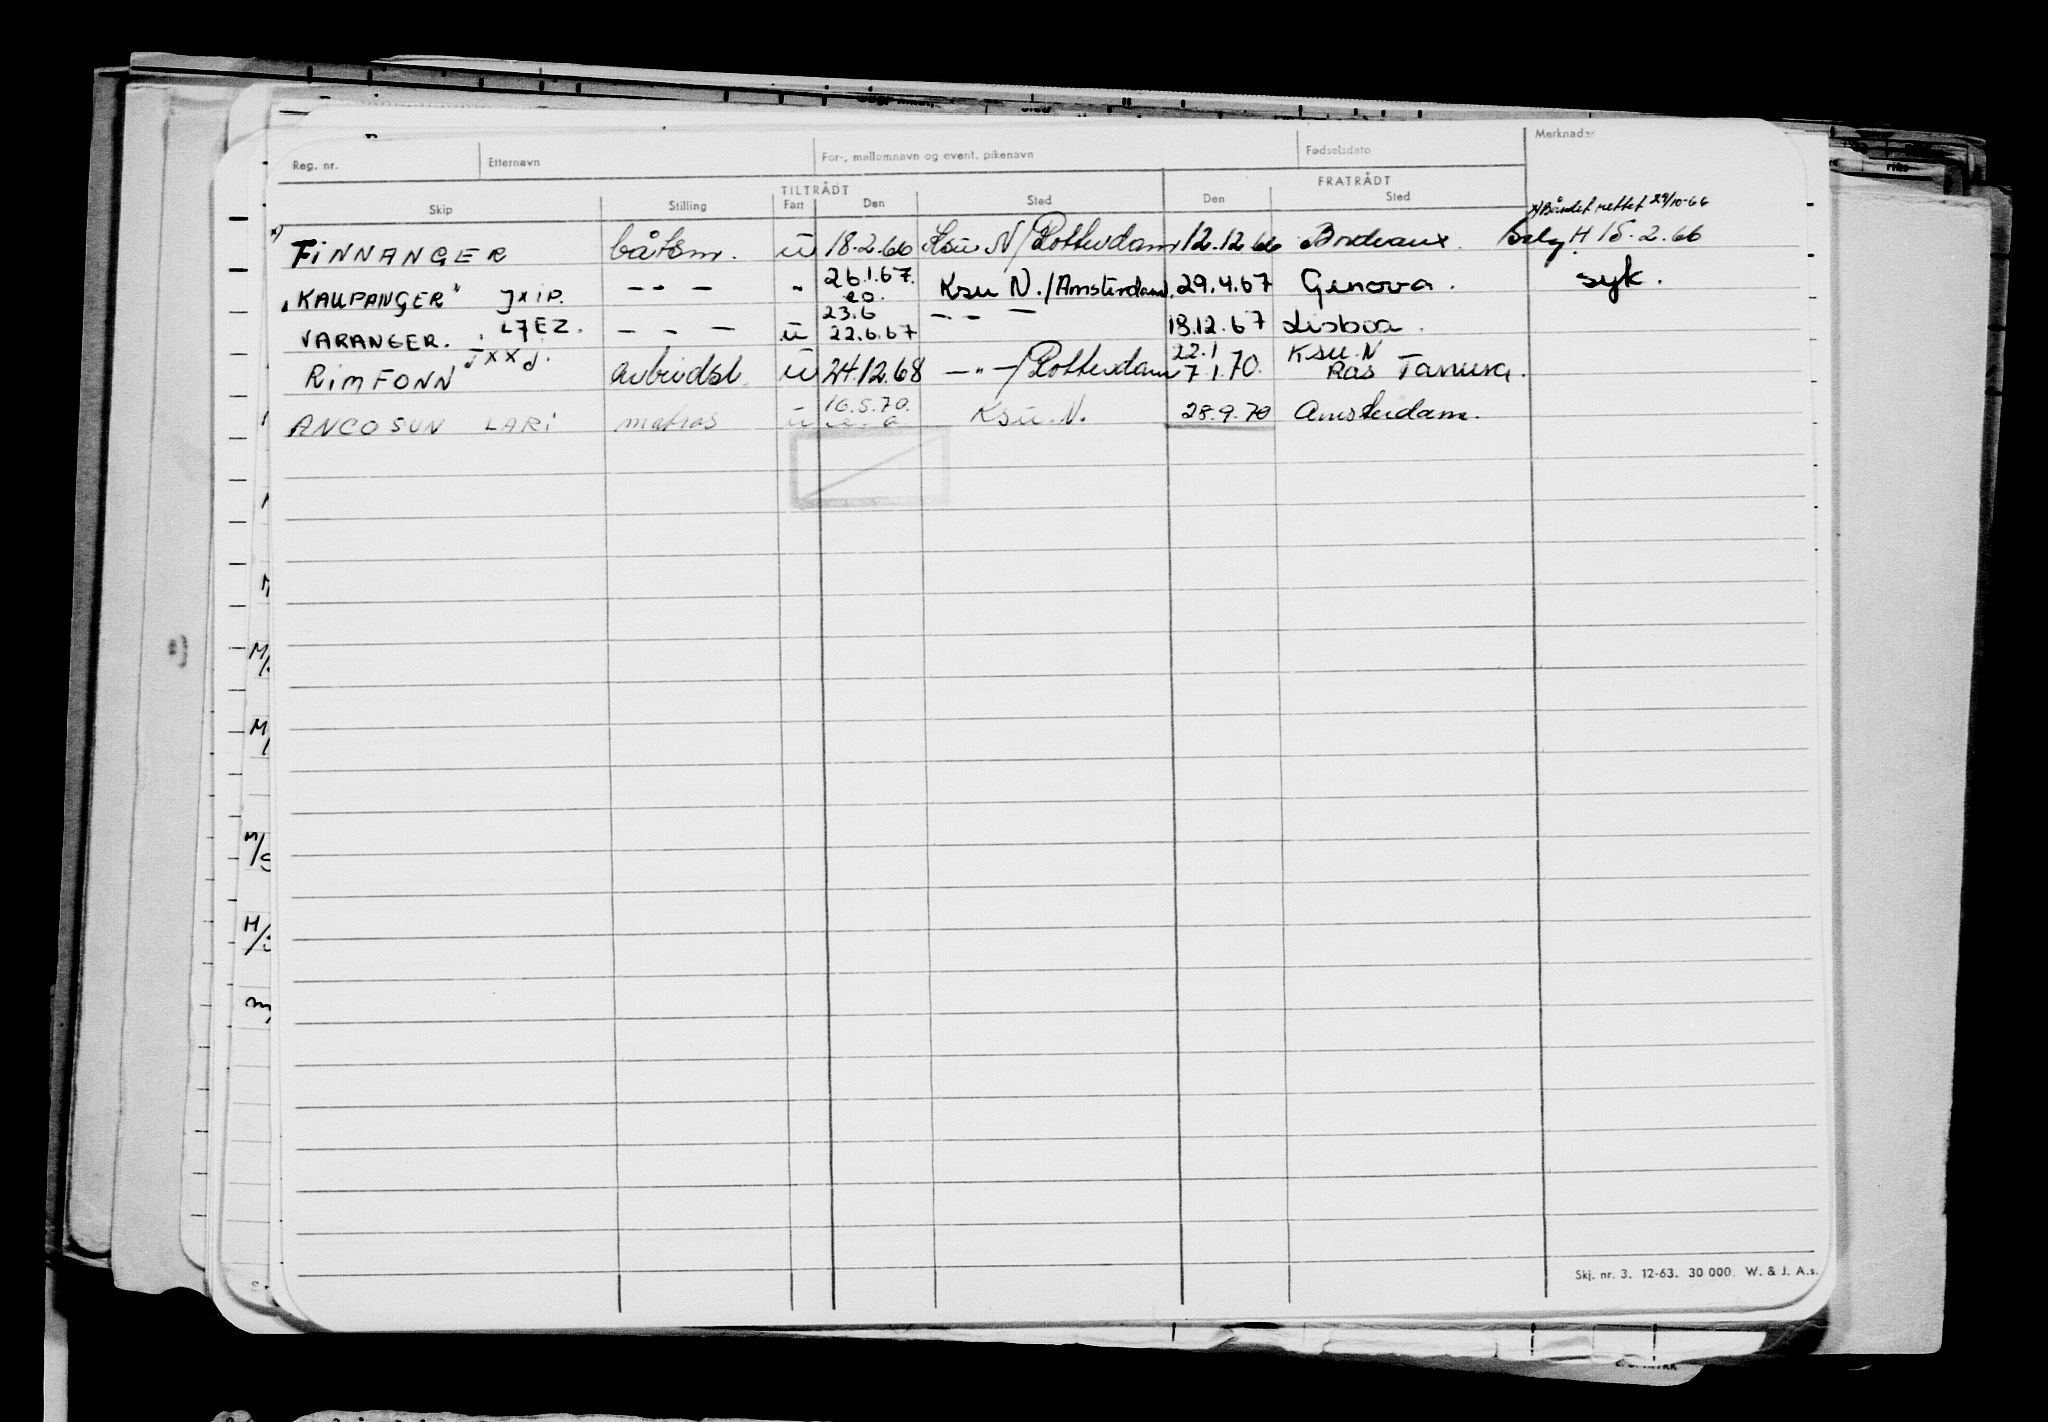 Reg. nr. Etternavn For-, mellomnavn og event. pikenavn Fødselsdato Merknader
TILTRÅDT FRATRÅDT
Skip Stilling Fart Den Sted Den Sted
x) Båndet rettet 29/10-66
x) FINNANGER båtsm. u 18.2.66 Ksu N/Rotterdam 12.12.66 Bordeaux. H 15.2.66
26.1.67.
"KAUPANGER" JXIP. -"- " 20. Ksu N./Amsterdam. 29.4.67 Genova. syk.
23.6
VARANGER. L7EZ. - " - u 22.6.67 - " - 18.12.67 Lisboa.
JXXJ. 22.1 Ksu. N
RIMFONN arbeidsl. u 24.12.68 -"-/Rotterdam 7.1.70. Ras Tanura.
16.5.70.
ANCO SUN LARI matros u u. a. Ksu. N. 28.9.70 Amsterdam.
M/
M/
M/
H/
Skj. nr. 3. 12-63. 30 000. W. & J. A.s.